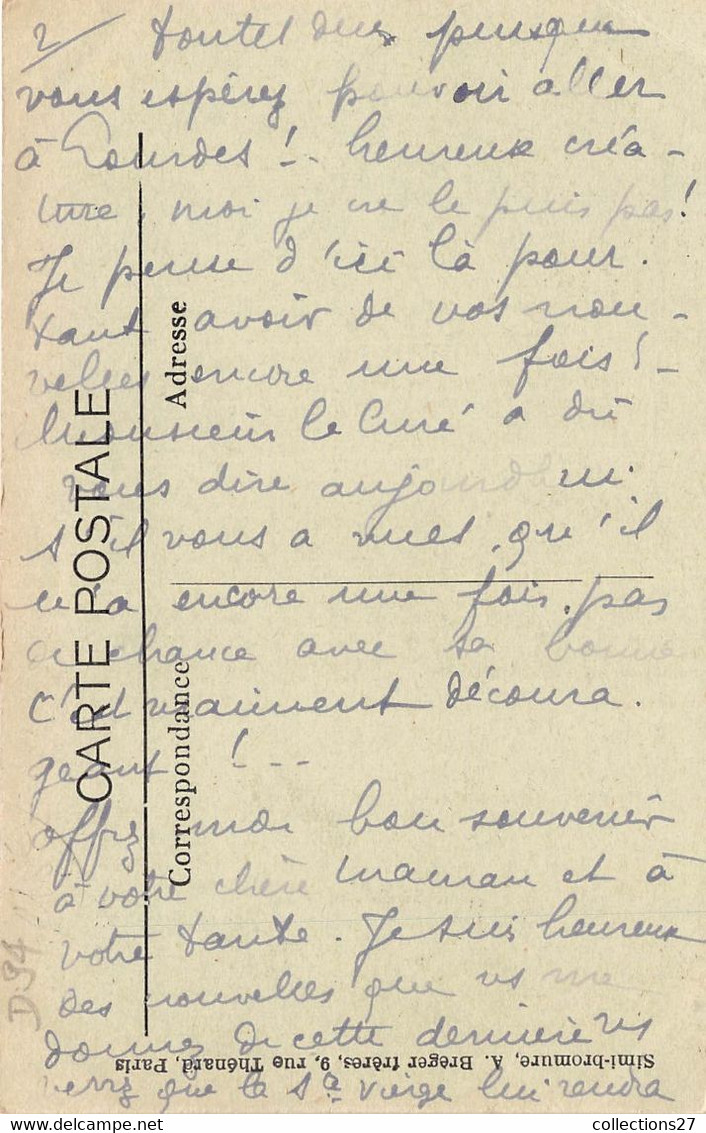 2/ toutes deux puisque
vous espérez pouvoir aller
à Lourdes !.. heureuse créa-
ture. moi je ne le puis pas!
Je pense d'ici là pour.
tant avoir de vos nou-
velles encore une fois! -
Monsieur le Curé a dû
vous dire aujourd'hui
s'il vous a vues, qu'il
n'a encore une fois, pas
de chance avec sa bonne
c'est vraiment découra.
geant !...
offrez moi bon souvenir
à votre chère maman et à
votre tante. Je suis heureux
des nouvelles que vs me
donnez de cette dernière vs
verrez que la Ste vierge lui rendra
CARTE POSTALE
Correspondance
Adresse
Simi-bromure, A. Breger frères, 9, rue Thénard, Paris
D94
collections27